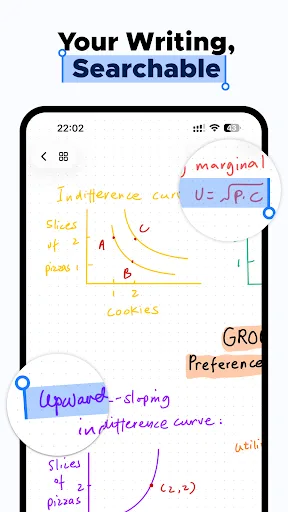 Your Writing,
Searchable
22:02
43
, marginal
U = √P.C
Indifference curv
Slices
of 2
pizzas 1
A
C
B
1 2
cookies
1
GRO
Preference
Upward--sloping
indifference curve:
utili
Slices
of
pizzas 2
(2,2)